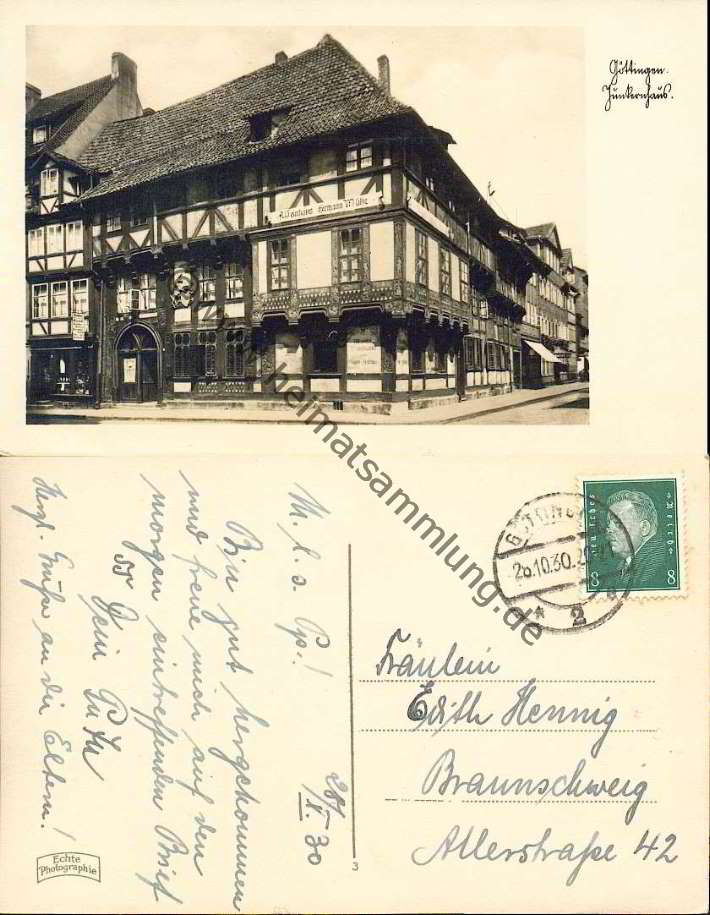 Göttingen.
Junkernhaus.
Hermann Müller
www.heimatsammlung.de
M. l. s. Pp.!
28/X. 30
Bin gut hergekommen
und freue mich auf den
morgen eintreffenden Brief
Dein
Herzl. Grüße an die Eltern!
Deutsches Reich
8 8
26.10.30.
* 2
Fräulein
Edith Hennig
Braunschweig
Allerstraße 42
3
Echte
Photographie